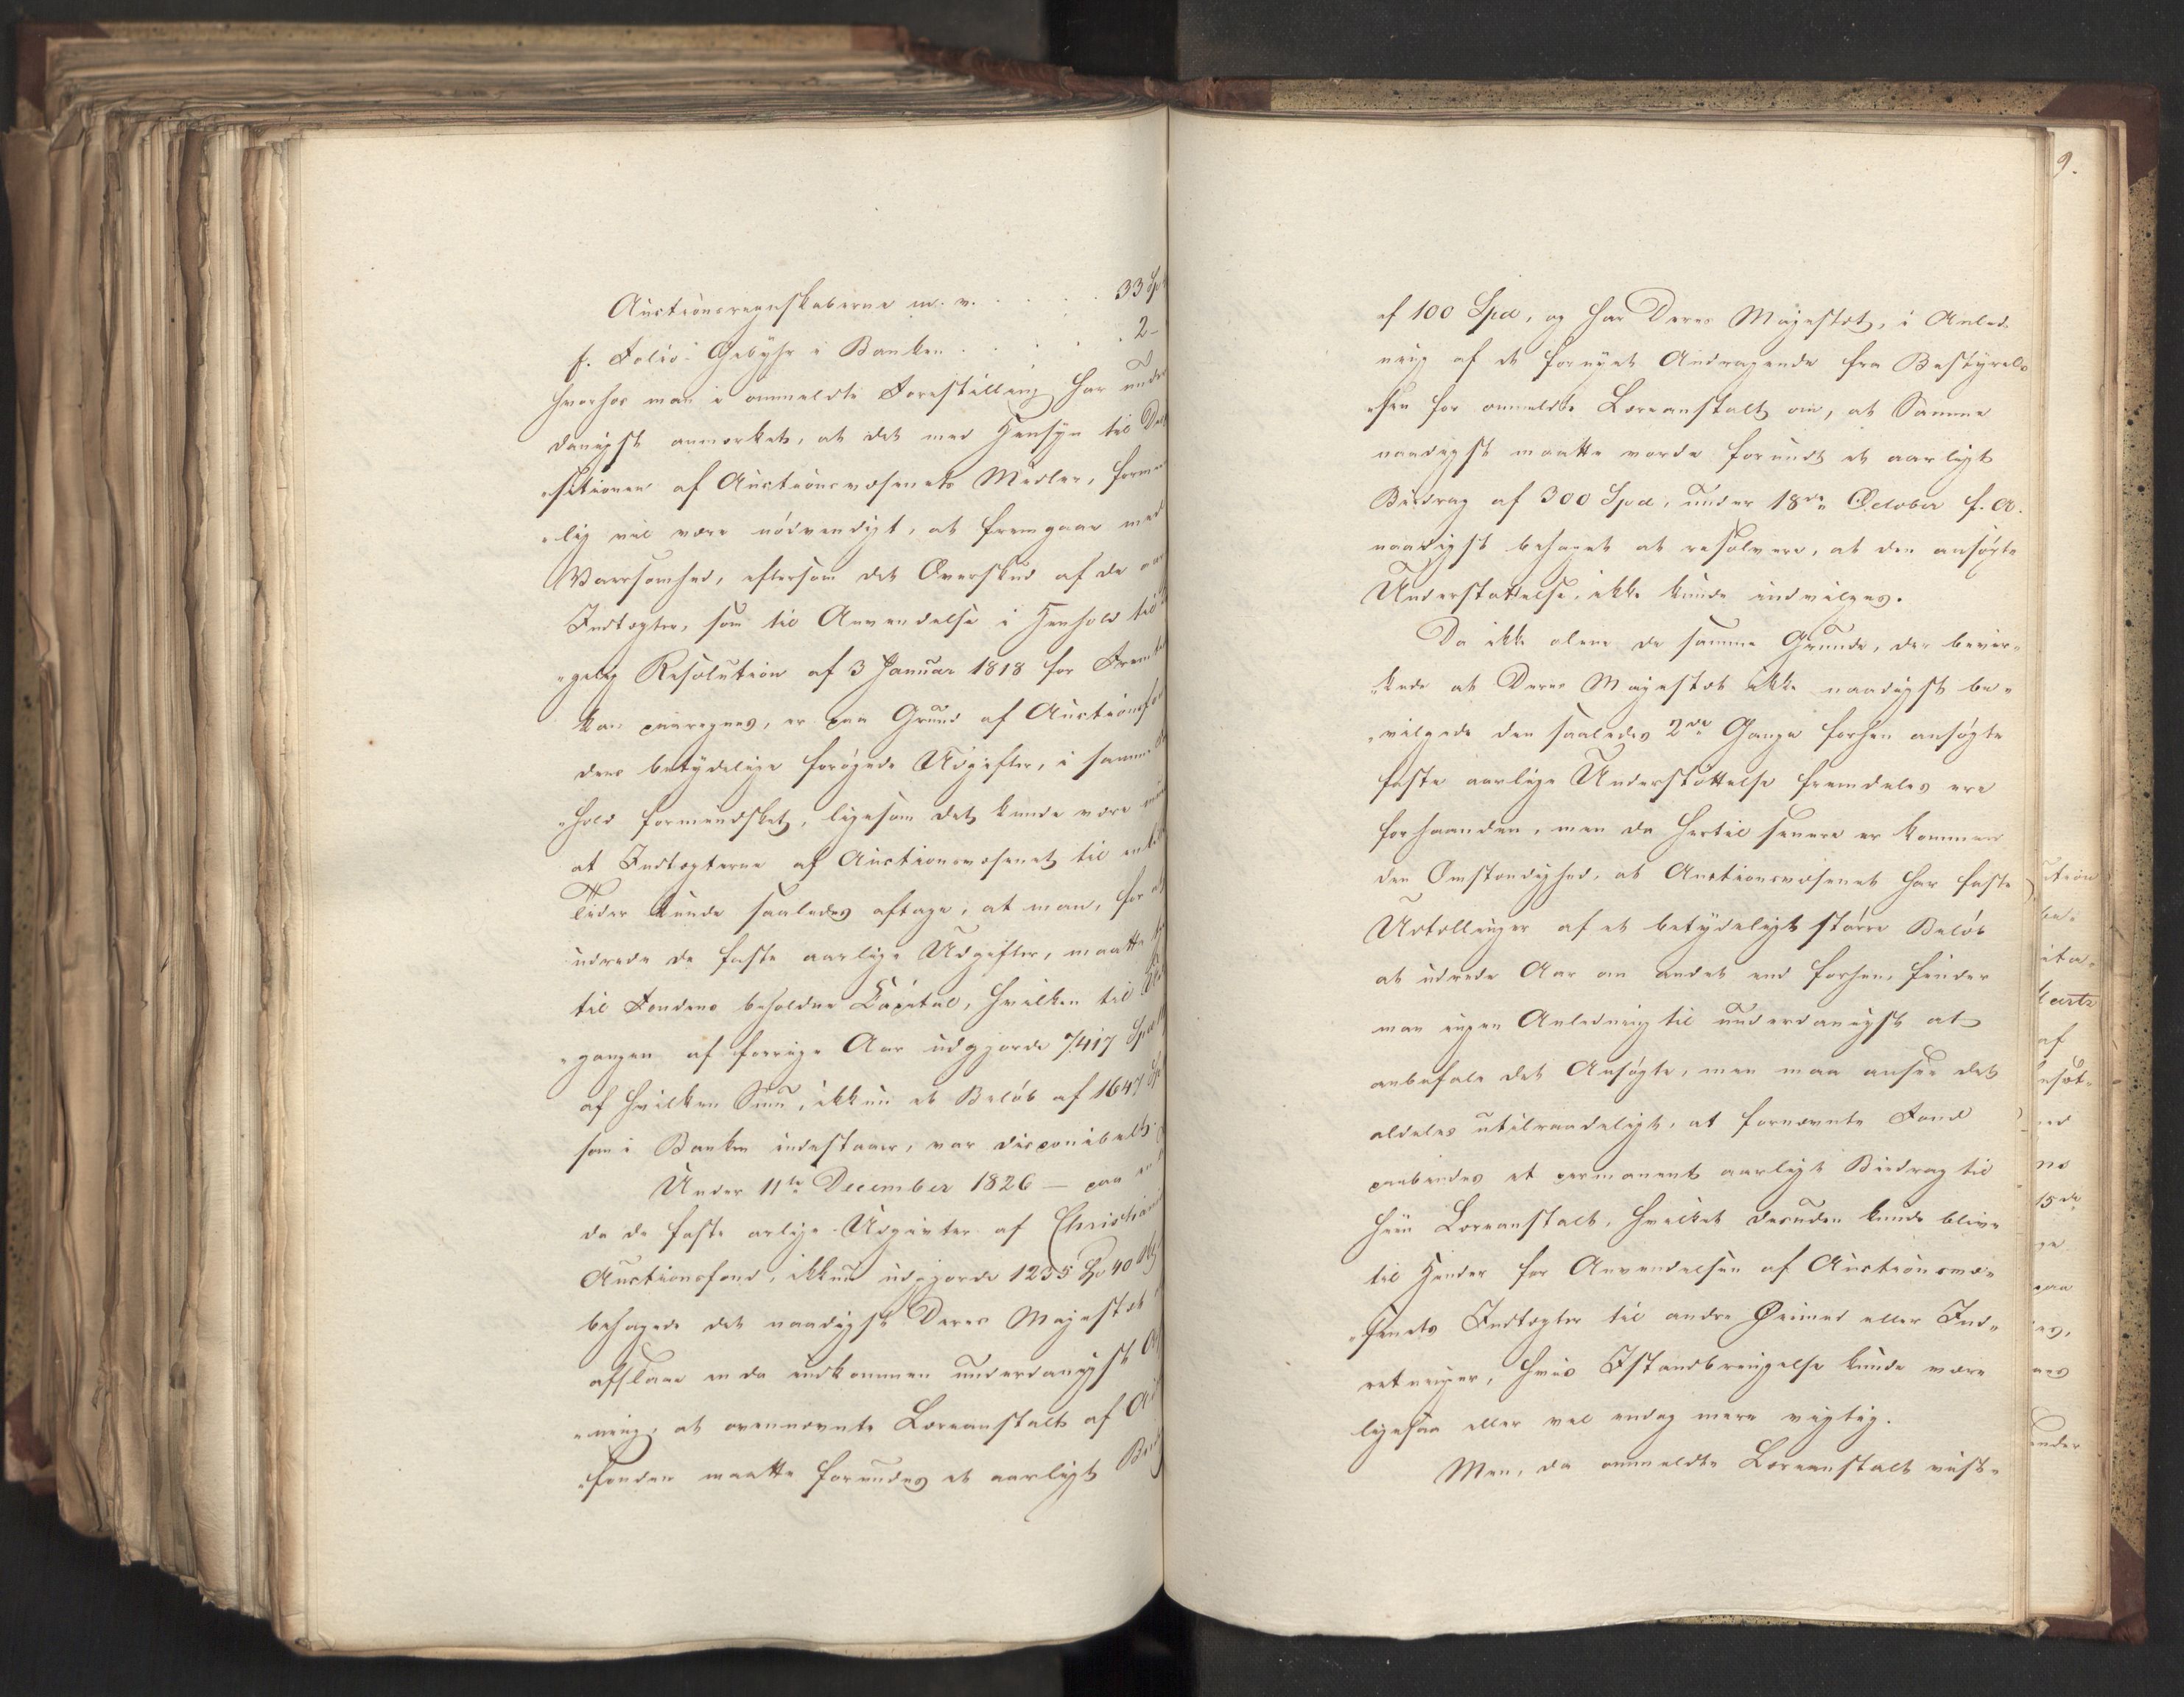 Auctionsregnskaberne m. v. . . . . . 33 Spd
f. Folio-Gebyhr i Banken . . . . . 2-
hvorhos man i ommeldte Forestilling har under
danigst anmærket, at det med Hensyn til Dis
„sitionen af Auctionsvæsenets Midler, formeent
„lig vil være nødvendigt, at fremgaae med
Varsomhed, eftersom det Overskud af de
Indtægter, som til Anvendelse i Henhold til
„gelig Resolution af 3 Januar 1818 for Fremti
kan paaregnes, er paa Grund af Auctionsfon
dens betydelige forøgede Udgifter, i samme
„hold formindsket, ligesom det kunde være
at Indtægterne af Auctionsvæsenet til enkelte
Tider kunde saaledes aftage, at man, for at
udrede de faste aarlige Udgifter, maatte
til Fondens beholdne Capital, hvilken til
„gangen af forrige Aar udgjorde 7,417 Spd
af hvilken Sum, ikkun et Beløb af 1647 Spd
som i Banken indestaaer, var disponibelt.
Under 11te December 1826 — paa en
da de faste arlige Udgivter af Christiania
Auctionsfond, ikkun udgjorde 1235 Sp 40
behagede det naadigst Deres Majestæt
afslaae en da indkommen underdanigst
„ning, at ovennævnte Læreanstalt af
„fonden maatte forundes et aarligt
af 100 Spd, og har Deres Majestæt, i Anled
ning af et fornyet Andragende fra Bestyrel
„sen for ommeldte Læreanstalt om, at Samme
naadigst maatte vorde forundt et aarligt
Bidrag af 300 Spd, under 18de October f. A.
naadigst behaget at resolvere, at den ansøgte
Understøttelse, ikke kunde indvilges.
Da ikke alene de samme Grunde, der bevir„
„kede at Deres Majestæt ikke naadigst be„
„vilgede den saaledes 2de Gange forhen ansøgte
faste aarlige Understøttelse fremdeles ere
forhaanden, men da hertil senere er kommen
den Omstændighed, at Auctionsvæsenet har faste
Udtællinger af et betydeligt større Beløb
at udrede Aar om andet end forhen, finder
man ingen Anledning til underdanigst at
anbefale det Ansøgte, men maa ansee det
aldeles utilraadeligt, at fornævnte Fond
paabindes et permanent aarligt Bidrag til
hiin Læreanstalt, hvilket desuden kunde blive
til Hinder for Anvendelsen af Auctionsvæ„
„senets Indtægter til andre Øiemed eller Ind„
retninger, hvis Istandbringelse kunde være
ligesaa eller vel endog mere vigtig.
Men, da ommeldte Læreanstalt vist„
9.